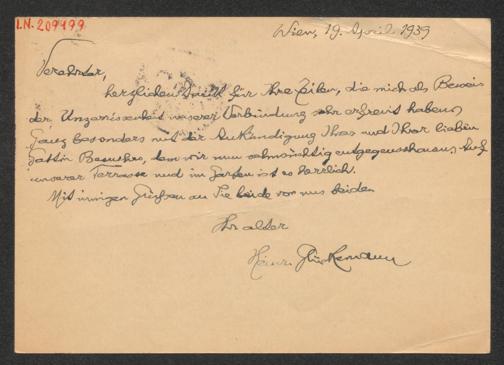 I.N. 209499
Wien, 19. April 1939
Verehrter,
herzlichen Dank für Ihre Zeilen, die mich als Beweis
der unserer Verbindung sehr erfreut haben,
Ganz besonders mit der Ankündigung Ihres und Ihrer lieben
Gattin Besuches, dem wir nun sehnsüchtig entgegenschauen. Auf
unserer Terrasse und im Garten ist es herrlich.
Mit innigen Grüßen an Sie beide von uns beiden
Ihr alter
Heinr. Glücksmann